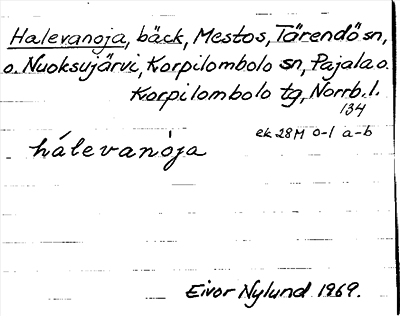 Halevanoja, bäck, Mestos, Tärendö sn,
o. Nuoksujärvi, Korpilombolo sn, Pajala o.
Korpilombolo tg, Norrb. l.
134
ek 28M 0-1 a-b
hálevanoja
Eivor Nylund 1969.